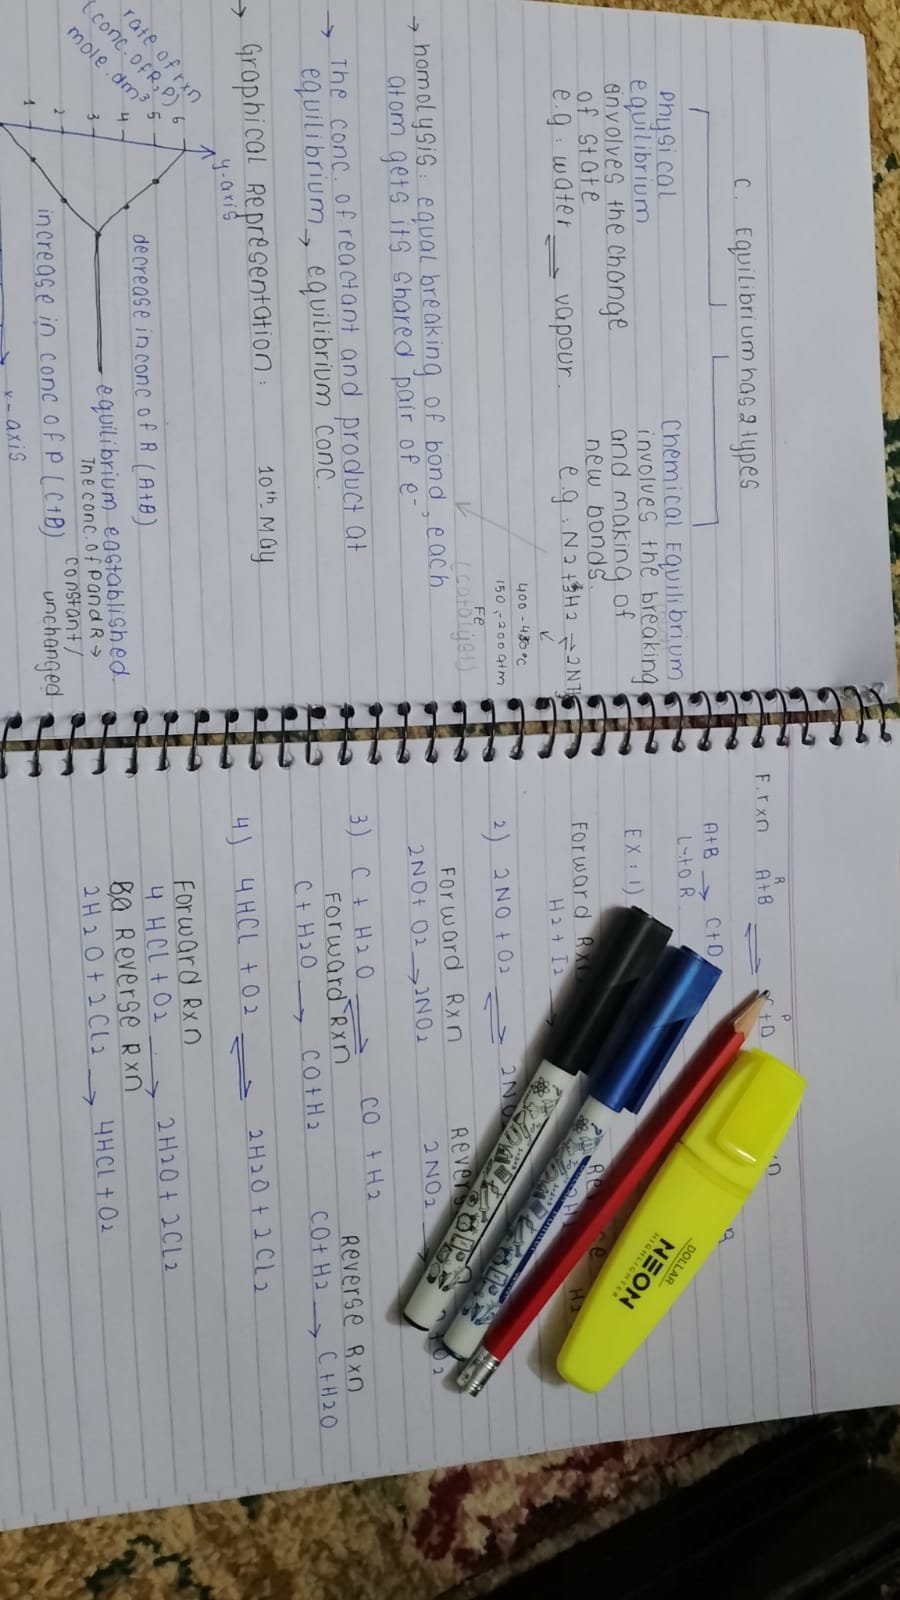 C. Equilibrium has 2 types
Physical
equilibrium
involves the change
of state
e.g: water ⇌ vapour.
Chemical Equilibrium
involves the breaking
and making of
new bonds.
e.g: N2+3H2 ⇌ 2NH3
400-450°C
150-200atm
Fe
(catalyst)
→ homolysis: equal breaking of bond, each
atom gets its shared pair of e-
→ The conc. of reactant and product at
equilibrium → equilibrium conc.
→ Graphical Representation: 10th May
rate of rxn
(conc. of R, P)
mole.dm3
y-axis
6
5
4
3
2
1
decrease in conc of R (A+B)
equilibrium eastablished.
The conc. of P and R →
constant/
unchanged
increase in conc of P (C+D)
x-axis
F.rxn A+B ⇌ C+D
R P
A+B → C+D
L to R
EX: 1)
Forward Rxn
H2 + I2 →
2) 2NO + O2 ⇌ 2NO
Forward Rxn
2NO + O2 → 2NO2
2NO2 →
3) C + H2O ⇌ CO + H2
Forward Rxn Reverse Rxn
C + H2O → CO + H2 CO + H2 → C + H2O
4) 4HCl + O2 ⇌ 2H2O + 2Cl2
Forward Rxn
4HCl + O2 → 2H2O + 2Cl2
Reverse Rxn
2H2O + 2Cl2 → 4HCl + O2
DOLLAR
NEON
HIGHLIGHTER